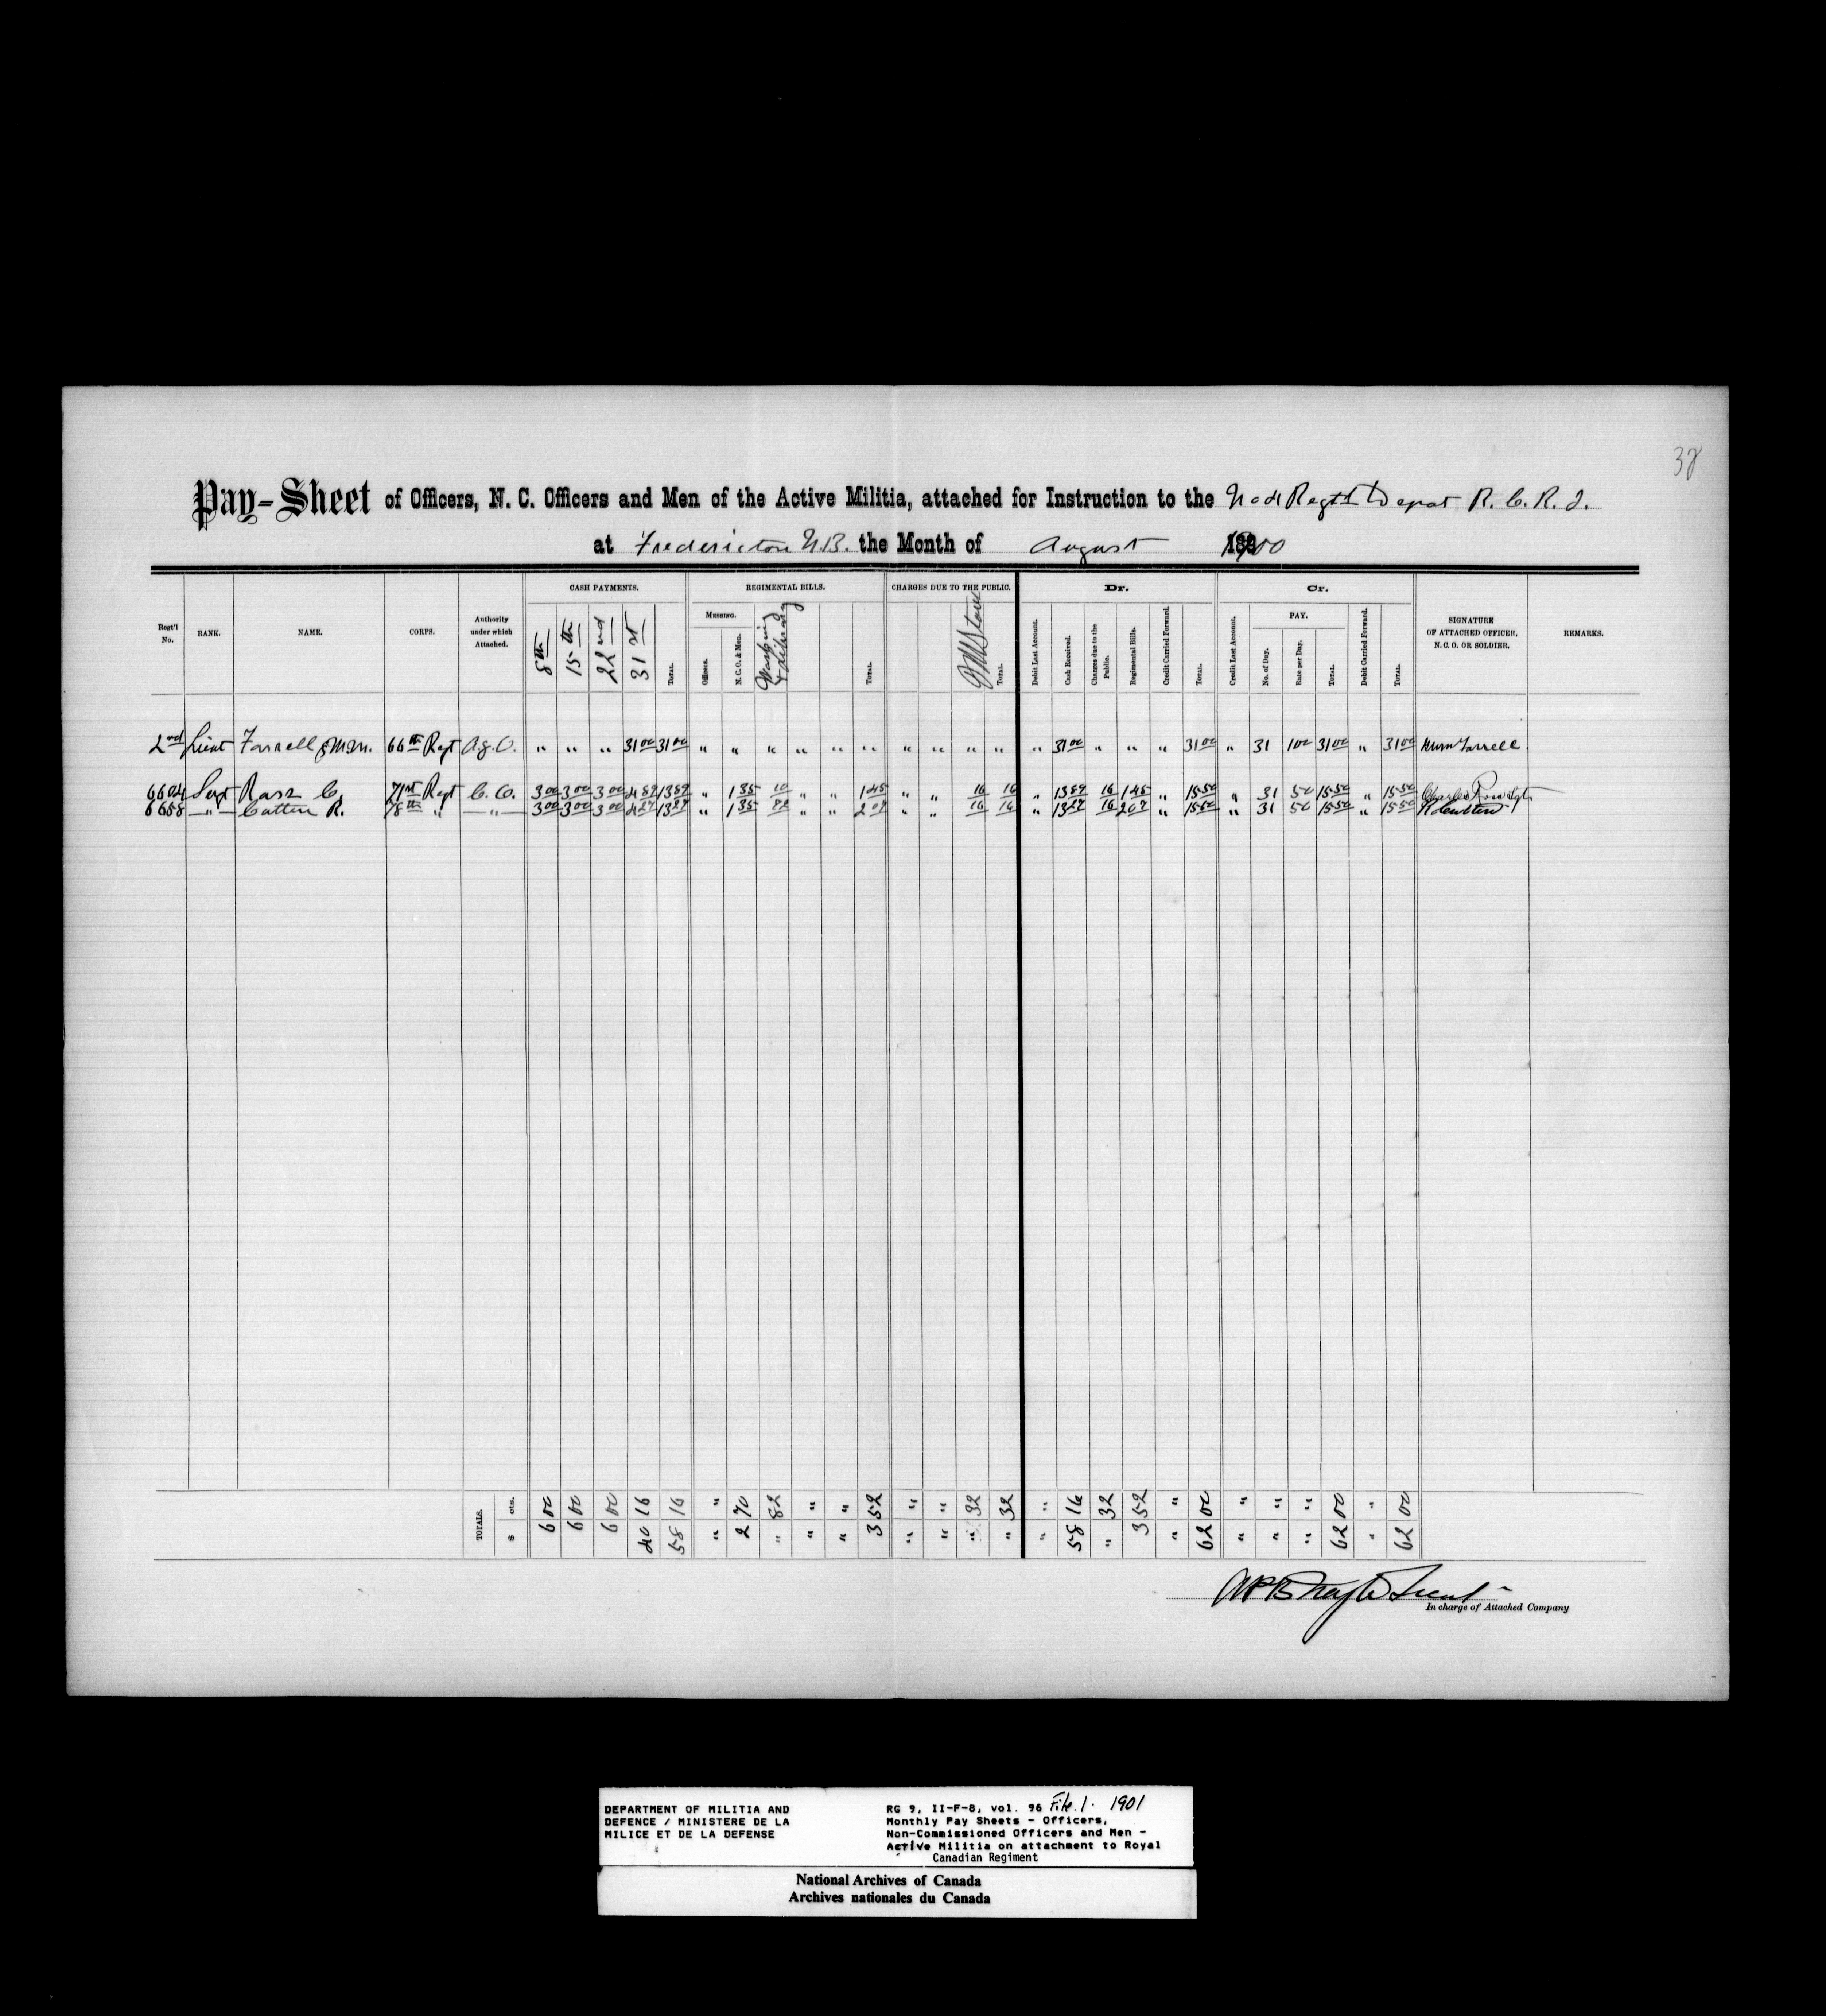 38
Pay-Sheet of Officers, N. C. Officers and Men of the Active Militia, attached for Instruction to the No 4 Regtl Depot R. C. R. I.
at Fredericton N.B. the Month of August 1900
Regt'l No. RANK. NAME. CORPS. Authority under which Attached. CASH PAYMENTS. 8th 15th 22nd 31st TOTAL. REGIMENTAL BILLS. MESSING. Officers. N. C. O. & Men. Washing & Library TOTAL. CHARGES DUE TO THE PUBLIC. TOTAL. Dr. Debit Last Account. Cash Received. Charges due to the Public. Regimental Bills. Credit Carried Forward. TOTAL. Cr. Credit Last Account. PAY. No. of Day. Rate per Day. TOTAL. Debit Carried Forward. TOTAL. SIGNATURE OF ATTACHED OFFICER, N. C. O. OR SOLDIER. REMARKS.
2nd Lieut Farrell 66th Regt A.G.O. " " " 31 00 31 00 " " " " " " " " " " " 31 00 " " " 31 00 " 31 1 00 31 00 " 31 00 Farrell
6604 Sergt Ross C. 71st Regt C. O. 3 00 3 00 3 00 4 89 13 89 " 1 35 10 " " 1 45 " " 16 16 " 13 89 16 1 45 " 15 50 " 31 50 15 50 " 15 50 Charles Ross Sgt
6688 " Cutten R. 78th " " 3 00 3 00 3 00 4 27 13 27 " 1 35 82 " " 2 07 " " 16 16 " 13 27 16 2 07 " 15 50 " 31 50 15 50 " 15 50 R Cutten
TOTALS. $ cts. 6 00 6 00 6 00 40 16 58 16 " 2 70 82 " " 3 52 " " 32 32 " 58 16 32 3 52 " 62 00 " " " 62 00 " 62 00
Lieut
In charge of Attached Company
DEPARTMENT OF MILITIA AND
DEFENCE / MINISTERE DE LA
MILICE ET DE LA DEFENSE
RG 9, II-F-8, vol. 96 File.1. 1901
Monthly Pay Sheets - Officers,
Non-Commissioned Officers and Men -
Active Militia on attachment to Royal
Canadian Regiment
National Archives of Canada
Archives nationales du Canada